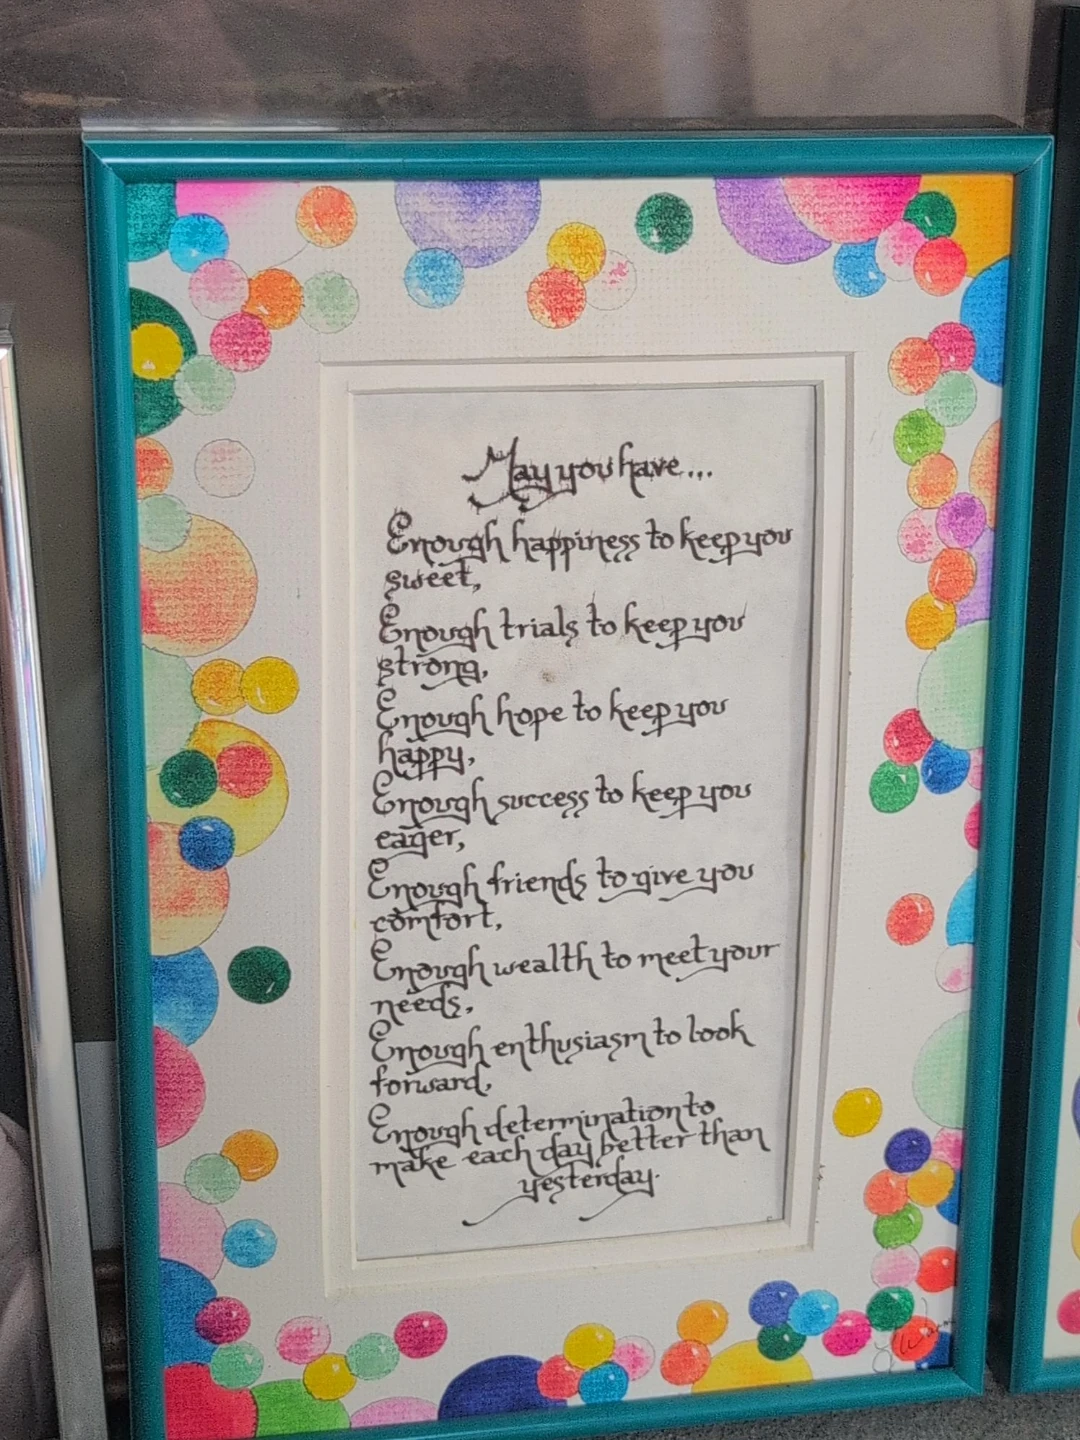 May you have...
Enough happiness to keep you
sweet,
Enough trials to keep you
strong,
Enough hope to keep you
happy,
Enough success to keep you
eager,
Enough friends to give you
comfort,
Enough wealth to meet your
needs,
Enough enthusiasm to look
forward,
Enough determination to
make each day better than
yesterday.